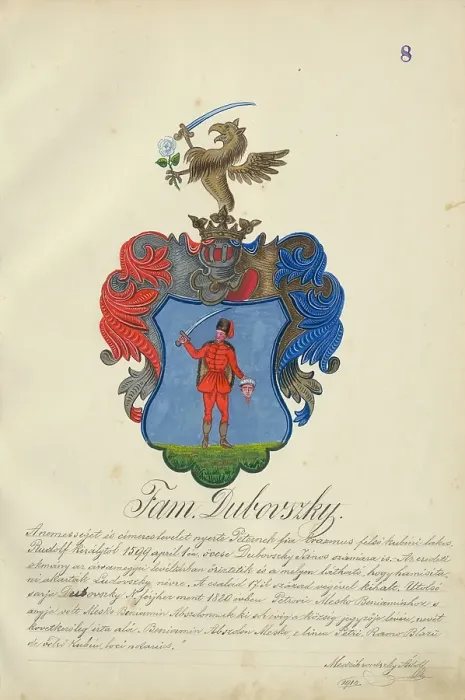 8
Fam. Dubovszky.
A nemességet és címereslevelet nyerte Péternek fia Erasmus felső kubini lakos,
Rudolf királytól 1599 april 1-én öcsse Dubovszky János számára is. - Az eredeti
okmány az árvamegyei levéltárban őriztetik és a melyen látható, hogy hamisíta-
ni akarták Ledovszky névre. A család 17-ik század végével kihalt. Utolsó
sarja Dubovszky N. férjhez ment 1820 ban Petrovi Meske Benjaminhoz s
anyja vele Meske Benjamin Absolonnak ki Árván a község jegyzője levén, nevét
következőleg írta alá: Benjamin Absolon Meske, e linea Petri, Rano Blasii
de Felső Kubin, loci notarius."
1912.